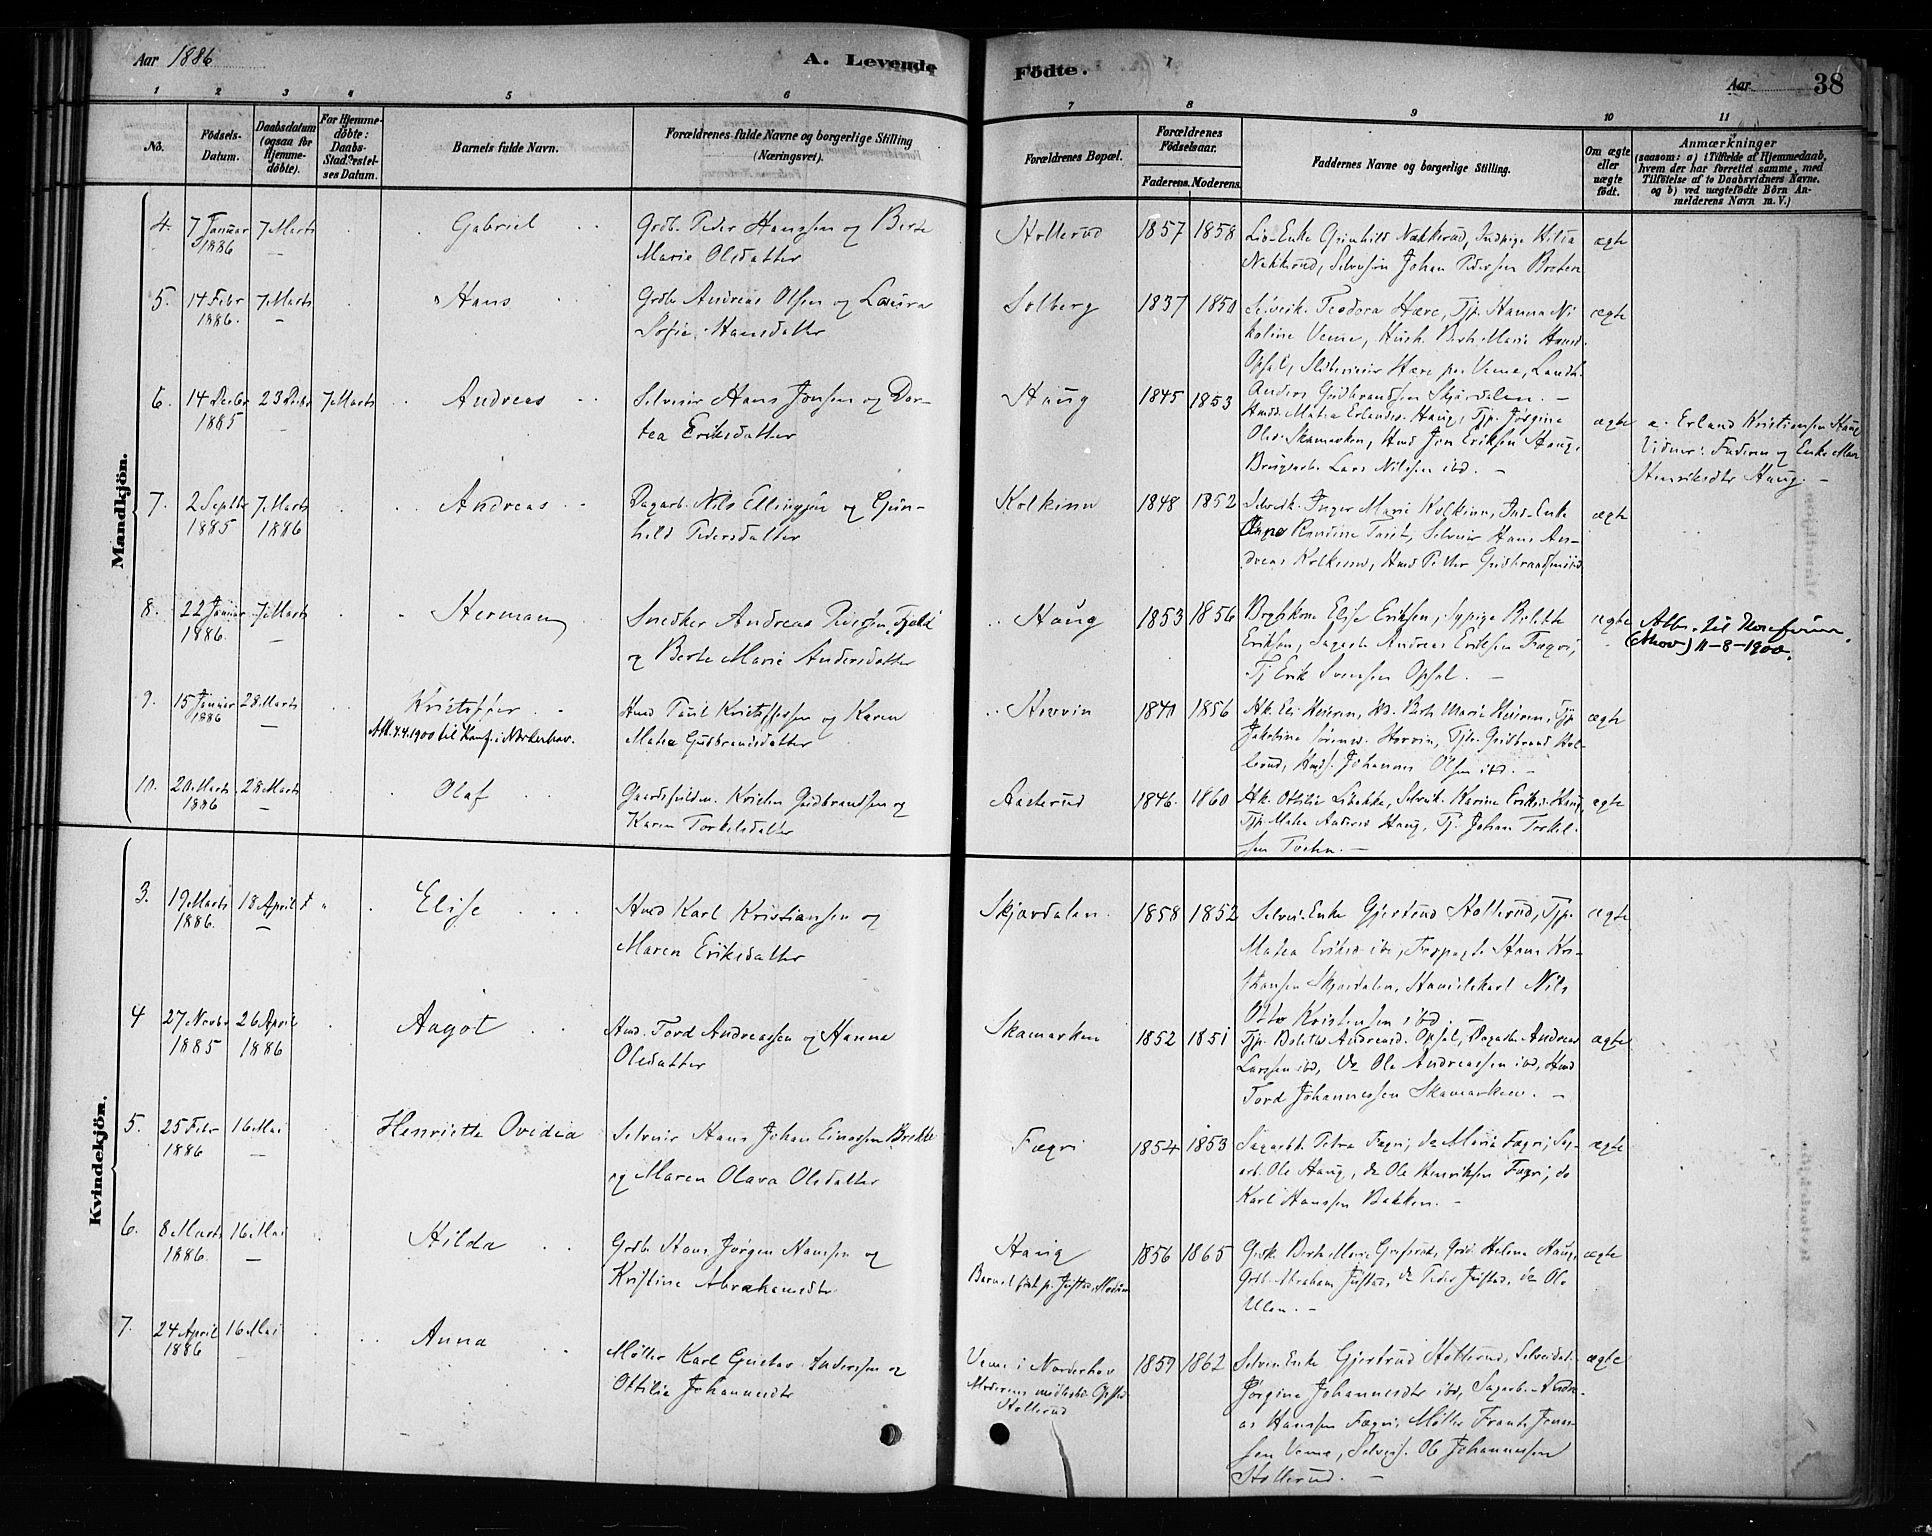 Aar 1886
A. Levende
Födte.
Aar
38
1 2 3 4 5 6 7 8 9 10 11
No.
Födsels-Datum.
Daabsdatum (ogsaa for Hjemmedöbte).
For Hjemmedöbte: Daabs-Stadfæstelses Datum.
Barnets fulde Navn.
Forældrenes fulde Navne og borgerlige Stilling (Næringsvei).
Forældrenes Bopæl.
Forældrenes Födselsaar.
Faderens. Moderens.
Faddernes Navne og borgerlige Stilling.
Om ægte eller uægte födt.
Anmærkninger
(saasom: a) i Tilfælde af Hjemmedaab,
hvem der har forrettet samme, med
Tilföielse af to Daabsvidners Navne,
og b) ved uægtefödte Börn An-
melderens Navn m. V.)
Mandkjön.
4. 7 Januar 1886 7 Marts — Gabriel
Grdb. Peder Hanssen og Berte
Marie Olsdatter
Hollerud 1857 1858
Enke Gunhild Nakkerud, Indpige Hilda
Nakkerud, Selveiersøn Johan Pedersen Braten
ægte
5. 14 Febr 1886. 7 Marts — Hans
Grdb. Andreas Olsen og Laura
Sofie Hansdatter
Solberg 1837 1850
Teodora Hære, Tjp. Hanna Ni-
koline Veme, Hush. Berte Marie Hansd.
Opsal, Hære pr Veme, Landh.
Anders Gudbrandsen Skjærdalen. —
ægte
6. 14 Decbr 1885 23 Decbr — 7 Marts Andreas
Selveier Hans Jonsen og Dor-
tea Eriksdatter
Haug 1845 1853
Hmds. Matea Erlandsd. Haug, Tjp. Jørgine
Olsd. Skamarken, Hmd Jon Eriksen Haug,
Brugsarb. Lars Nilssen ibd. —
ægte
a. Erland Kristiansen Haug
Vidner: Faderen og Enke Mari
Henriksdtr Haug. —
7. 2 Septbr 1885 7 Marts 1886 Andreas
Dagarb. Nils Ellingsen og Gun-
hild Pedersdatter
Kolkinn 1848 1852
Selveik. Inger Marie Kolkinn, Ind-Enke
Anne Randine Tvæt, Selveier Hans An-
dreas Kolkinn, Hmd Petter Gudbrandsen ibd
ægte
8. 22 Januar 1886. 7 Marts — Herman
Snedker Andreas Pedersen Fjeld
og Berte Marie Andersdatter
Haug 1853 1856
Elise Eriksen, Sypige Bolette
Eriksen, Sagarb Andreas Eriksen Fægri,
Tj Erik Svensen Opsal. —
ægte
Att. til
(Mov) 11-8-1900.
9. 15 Januar 1886 28 Marts — Kristoffer
Att. 4.4.1900 til Konf. i Norderhov.
Hmd Paul Kristoffersen og Karen
Matea Gudbrandsdatter
Hovvin 1840 1856
Berte Marie Heieren, Tjp
Jakobine Sørensd. Hovvin, Tjdr. Gudbrand Hol-
lerud, Hmds. Johannes Olsen ibd. —
ægte
10. 20 Marts 1886 28 Marts — Olaf
Gaardsfuldm. Kristen Gudbrandsen og
Karen Torkelsdatter
Aasterud 1846. 1860
Ottilia Libakke, Selveik. Karine Eriksd. Haug,
Tjp. Matea Andersd Haug, Tj. Johan Torkel-
sen Tveten. —
ægte
Kvindekjön.
3. 19 Marts 1886. 18 April — Elise
Hmd Karl Kristiansen og
Maren Eriksdatter
Skjærdalen. 1858 1852
Selvei-Enke Gjertrud Hollerud, Tjp.
Matea Eriksd ibd, Hans Kri-
stiansen Skjærdalen, Handelskarl Nils
Otto Kristensen ibd. —
ægte
4 27 Novbr 1885 26 April 1886 Aagot
Hmd. Tord Andreassen og Hanna
Olsdatter
Skamarken 1852 1851
Tjp. Bolette Andreasd. Opsal, Dagarb. Andreas
Larssen ibd, Do Ole Andreassen ibd, Hmd
Tord Johannessen Skamarken. —
ægte
5. 25 Febr 1886 16 Mai — Henriette Ovidia
Selveier Hans Johan Einarsen Brekke
og Maren Olava Olsdatter
Fægri 1854 1853
Sagarbk Petra Fægri, do Marie Fægri, Sag-
arb. Ole Haug, do Ole Henriksen Fægri, do
Karl Hanssen Bakken. —
ægte
6. 8 Marts 1886. 16 Mai — Hilda
Grdbr Hans Jørgen Hanssen og
Kristine Abrahamsdtr.
Haug
Barnet født p. Justad, Modum
1856 1865
Grdk. Berte Marie Grøsrud, Grdd. Helene Haug,
Grdb. Abraham Justad, do Peder Justad, do Ole
Ulen. —
ægte
7. 24 April 1886 16 Mai Anna
Møller Karl Gustav Anderssen og
Ottilia Johannesdtr
Veme i Norderhov
Moderens midlertid. Opholdst.
Hollerud
1859 1862
Selvei-Enke Gjertrud Hollerud, Selveidat.
Jørgine Johannesdtr ibd, Sagarb. Andre-
as Hanssen Fægri, Møller Frants Jonas-
sen Veme, Selveis. Ole Johannessen
Hollerud. —
ægte